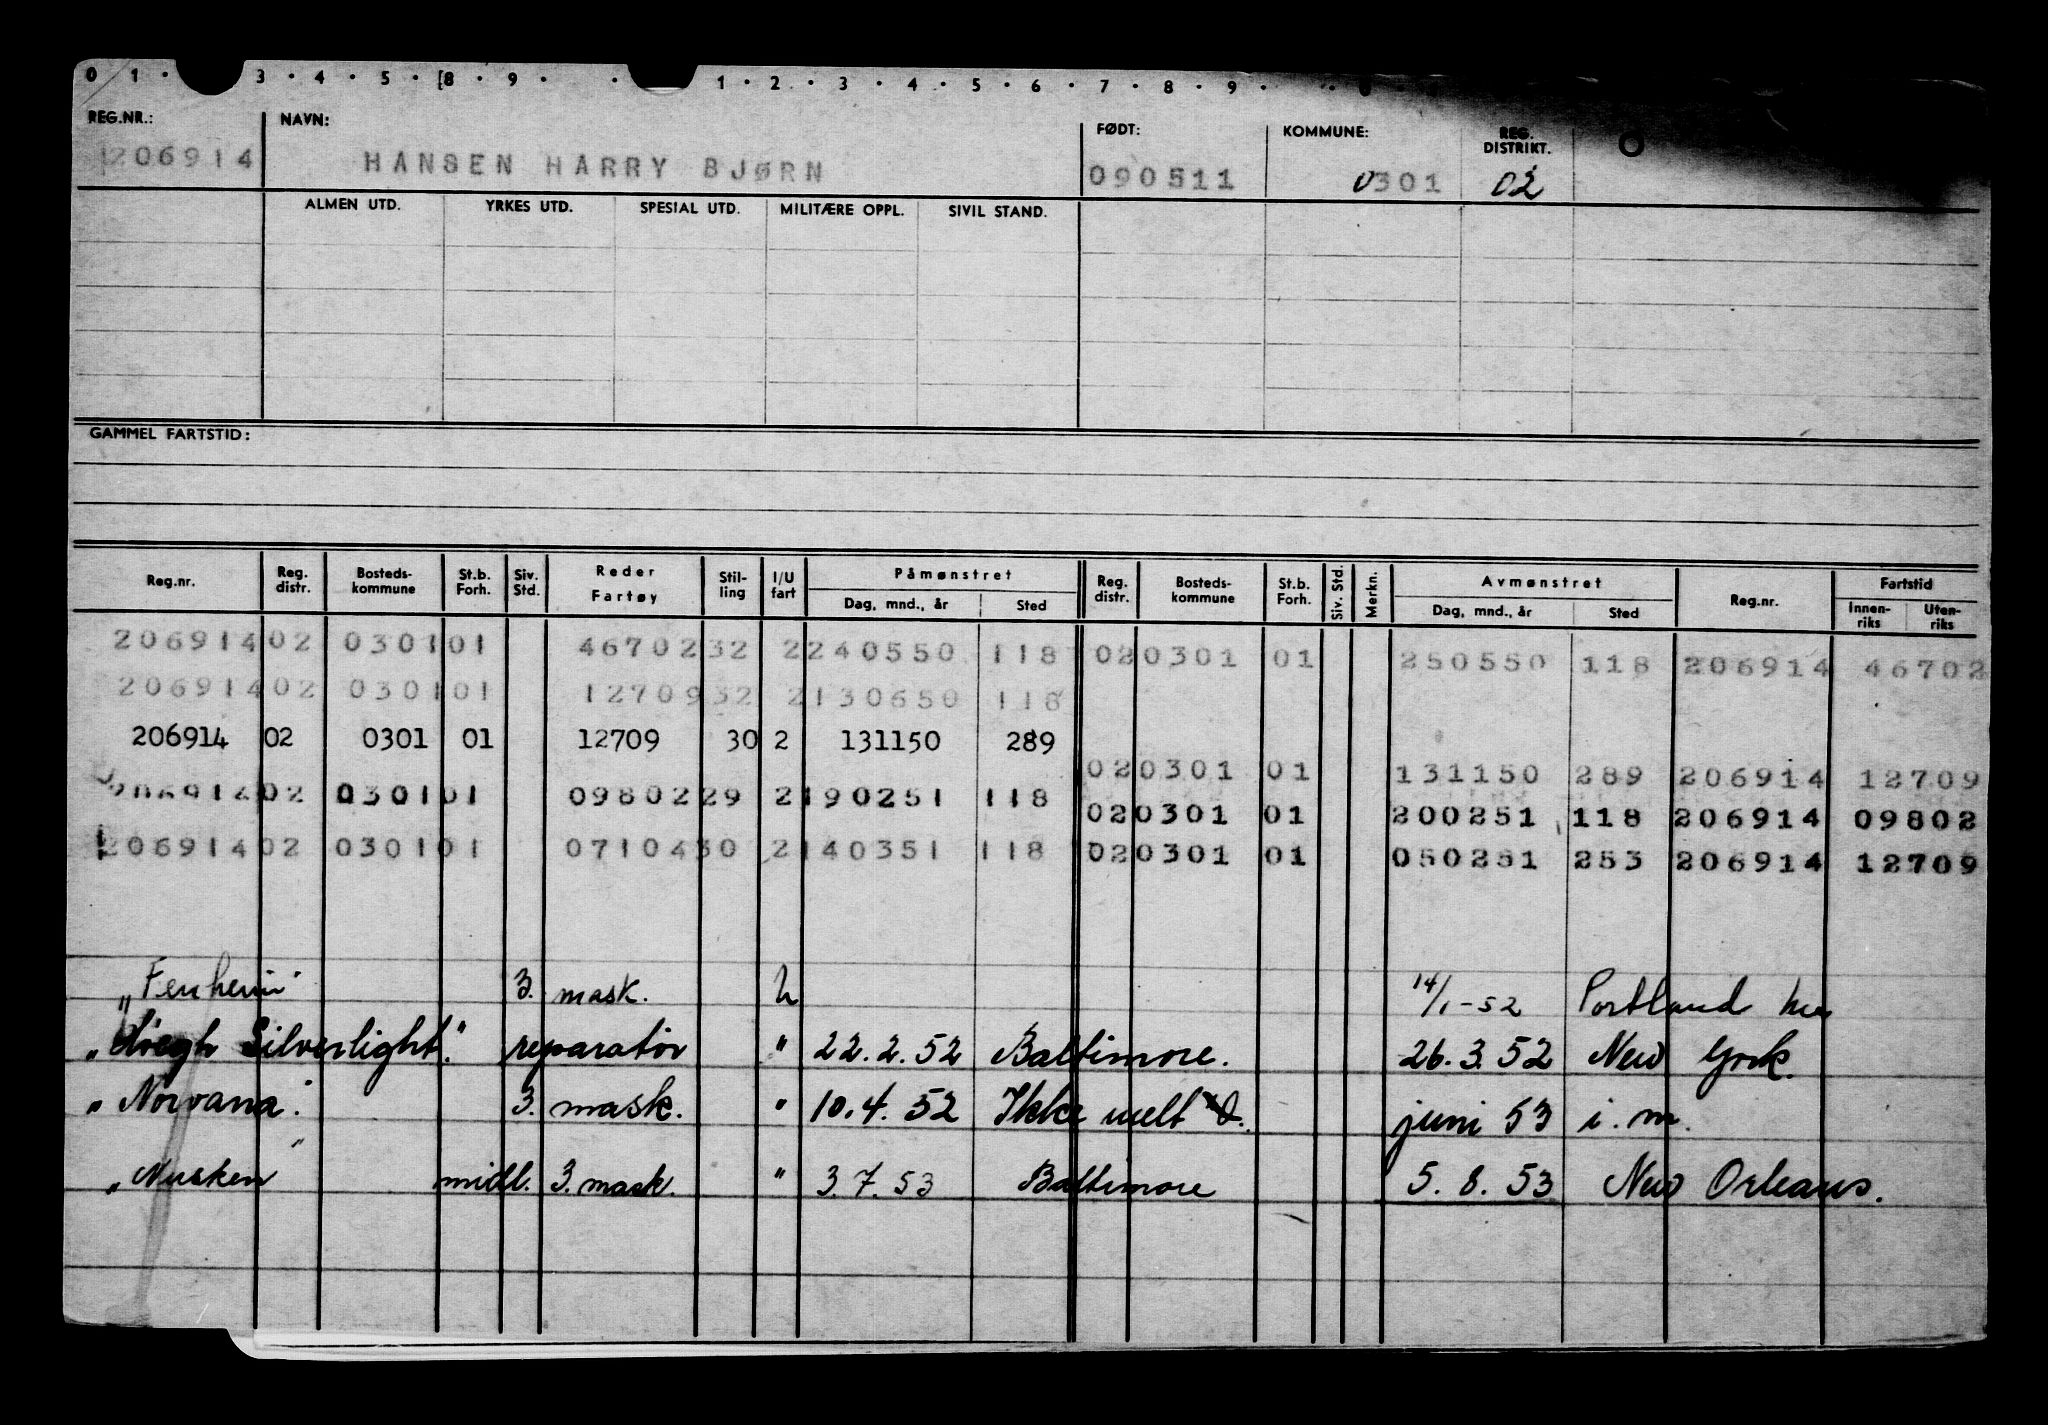 0 1 · 3 · 4 · 5 · [8 · 9 · · 1 · 2 · 3 · 4 · 5 · 6 · 7 · 8 · 9 ·
REG.NR.: NAVN: FØDT: KOMMUNE: REG. DISTRIKT.
206914 HANSEN HARRY BJØRN 090511 0301 02
ALMEN UTD. YRKES UTD. SPESIAL UTD. MILITÆRE OPPL. SIVIL STAND.
GAMMEL FARTSTID:
Reg.nr. Reg. distr. Bosteds-kommune St.b. Forh. Siv. Std. Reder Fartøy Stil-ling I/U fart Påmønstret Dag, mnd., år Sted Reg. distr. Bosteds-kommune St.b. Forh. Siv. Std. Merkn. Avmønstret Dag, mnd., år Sted Reg.nr. Fartstid Innen-riks Uten-riks
206914 02 0301 01 46702 32 2 240550 118 02 0301 01 250550 118 206914 46702
206914 02 0301 01 12709 32 2 130650 118
206914 02 0301 01 12709 30 2 131150 289
02 0301 01 131150 289 206914 12709
206914 02 0301 01 09802 29 2 190251 118
02 0301 01 200251 118 206914 09802
206914 02 0301 01 07104 30 2 140351 118
02 0301 01 050251 253 206914 12709
3. mask. 14/1-52 Portland
"Høegh Silverlight." reparatør " 22.2.52 Baltimore. 26.3.52 New York.
"Norvana". 3. mask. " 10.4.52 Ikke juni 53 i.m.
"Nusken" midl. 3. mask. " 3.7.53 Baltimore 5.8.53 New Orleans.